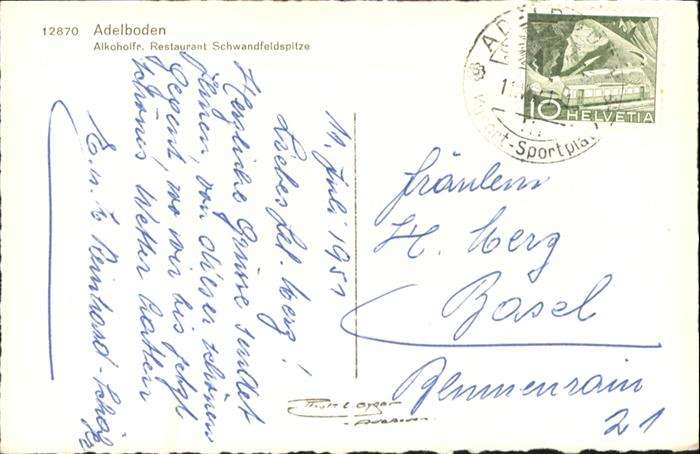 12870 Adelboden
Alkoholfr. Restaurant Schwandfeldspitze
11. Juli 1951
Liebes Frl. Merz!
Herzliche Grüsse sendet
Ihnen, von dieser schönen
Gegent, wo wir bis jetzt
schönes Wetter hatten
E. u. E. Reinhard-
HELVETIA
10
Kurort-Sportplatz
Fräulein
H. Merz
Basel
Blumenrain
21